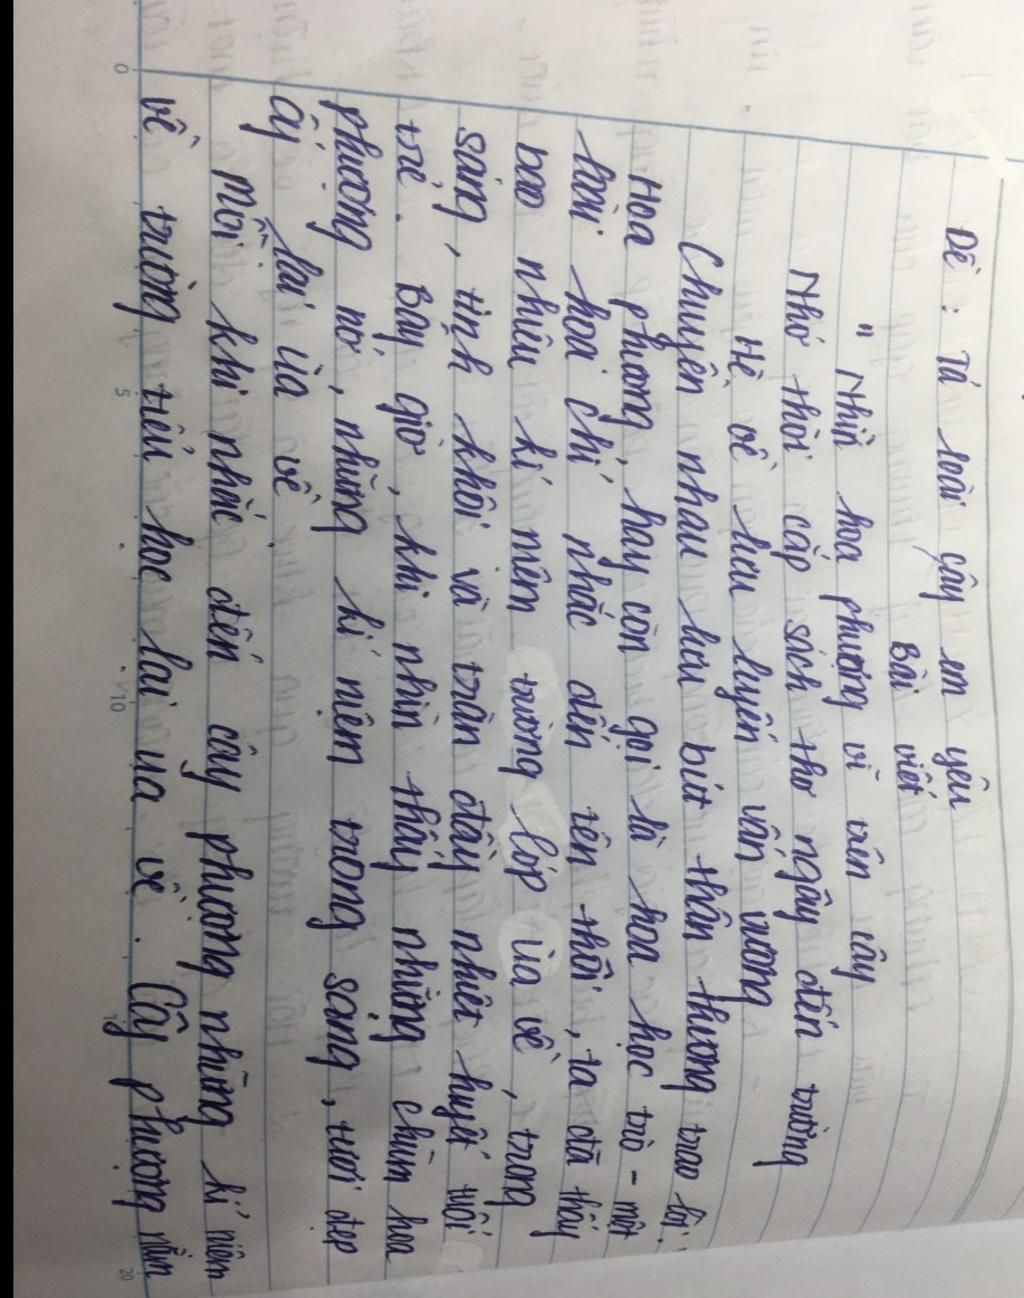 Đề : Tả loài cây em yêu
Bài viết
" Nhìn hoa phượng vĩ trên cây
Nhớ thời cắp sách thơ ngây đến trường
Hè về lưu luyến vấn vương
Chuyền nhau lưu bút thân thương trao lời."
Hoa phượng, hay còn gọi là hoa học trò - một
loài hoa chỉ nhắc đến tên thôi, ta đã thấy
bao nhiêu kỉ niệm trường lớp ùa về, trong
sáng, tinh khôi và tràn đầy nhiệt huyết tuổi
trẻ. Bây giờ, khi nhìn thấy những chùm hoa
phượng nở, những kỉ niệm trong sáng, tươi đẹp
ấy lại ùa về.
Mỗi khi nhắc đến cây phượng những kỉ niệm
về trường tiểu học lại ùa về. Cây phượng nằm
0 5 10 15 20